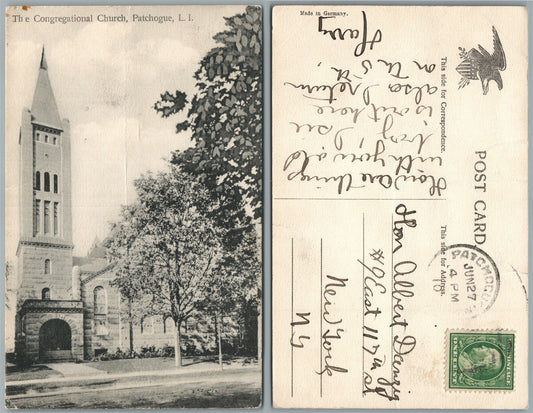 The Congregational Church, Patchogue, L. I.
Made in Germany.
POST CARD
This side for Correspondence.
This side for Address.
How are things
with you old
boy, I see
is out here
also. I return
on
Harry
PATCHOGUE
JUN 27
4 PM
10
Hon Albert Danzig
#9 East 117th St
New York
N Y